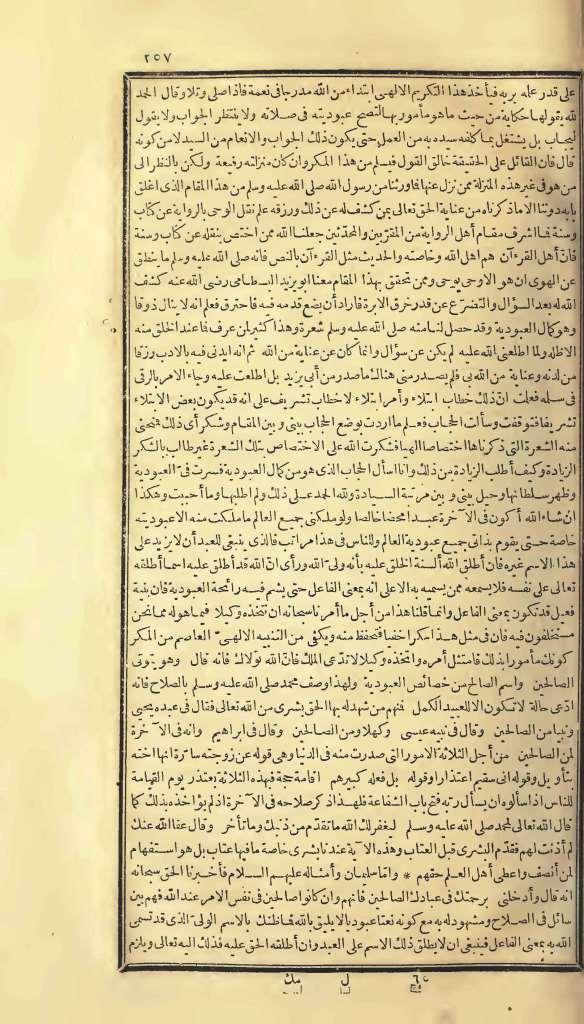 ٢٥٧
على قدر علمه بربه فيأخذ هذا التكريم الالهى ابتداء من الله مدرجا فى نعمة فاذا صلى وتلا وقال الحمد
لله يقولها حكاية من حيث ما هو مأمور بها لتصح عبوديته فى صلاته ولا ينتظر الجواب ولا يقول
ليجاب بل يشتغل بما كلفه سيده به من العمل حتى يكون ذلك الجواب والانعام من السيد لا من كونه
قال فان القائل على الحقيقة خالق القول فيه فيسلم من هذا المكر وان كان منزلته رفيعة ولكن بالنظر الى
من هو فى غير هذه المنزلة ممن نزل عنها فاورثنا من رسول الله صلى الله عليه وسلم من هذا المقام الذى اغلق
بابه دوننا الا ما ذكرناه من عناية الحق تعالى بمن كشف له عن ذلك ورزقه علم نقل الوحى بالرواية عن كتاب
وسنة فما اشرف مقام أهل الرواية من المقربين والمحدّثين جعلنا الله ممن اختص بنقله عن كتاب وسنة
فانّ أهل القرءآن هم أهل الله وخاصته والحديث مثل القرءآن بالنص فانه صلى الله عليه وسلم ما ينطق
عن الهوى ان هو الا وحى يوحى وممن تحقق بهذا المقام معنا ابو يزيد البسطامى رضى الله عنه كشف
الله له بعد السؤال والتضرع عن قدر خرق الابرة فاراد أن يضع قدمه فيه فاحترق فعلم انه لا ينال ذوقا
وهو كمال العبودية وقد حصل لنا منه صلى الله عليه وسلم شعرة وهذا كثير لمن عرف فما عند الخلق منه
الا ظله ولما اطلعنى الله عليه لم يكن عن سؤال وانما كان عن عناية من الله ثم انه ايدنى فيه بالادب رزقا
من لدنه وعناية من الله بى فلم يصدر منى هنالك ما صدر من أبى يزيد بل اطلعت عليه وجاء الامر بالرقى
فى سلمه فعلمت انّ ذلك خطاب ابتلاء وأمر ابتلاء لا خطاب تشريف على انه قد يكون بعض الابتلاء
تشريفا فتوقفت وسألت الحجاب فعلم ما اردت فوضع الحجاب بينى وبين المقام وشكر لى ذلك فمنحنى
منه الشعرة التى ذكرناها اختصاصا الهيا فشكرت الله على الاختصاص بتلك الشعرة غير طالب بالشكر
الزيادة وكيف أطلب الزيادة من ذلك وانا اسأل الحجاب الذى هو من كمال العبودية فسرت فىّ العبودية
وظهر سلطانها وحيل بينى وبين مرتبة السيادة ولله الحمد على ذلك ولم اطلبها وما أجبت وهكذا
ان شاء الله أكون فى الآخرة عبدا محضا خالصا ولو ملكنى جميع العالم ما ملكت منه الا عبوديته
خاصة حتى يقوم بذاتى جميع عبودية العالم وللناس فى هذا مراتب فالذى ينبغى للعبد أن لا يزيد على
هذا الاسم غيره فان أطلق الله ألسنة الخلق عليه بأنه ولىّ الله ورأى انّ الله قد أطلق عليه اسما أطلقه
تعالى على نفسه فلا يسمعه ممن يسميه به الا على انه بمعنى المفعول لا بمعنى الفاعل حتى يشم فيه رائحة العبودية فان بنية
فعيل قد تكون بمعنى الفاعل وانما قلنا هذا من أجل ما أمرنا سبحانه ان نتخذه وكيلا فيما هو له مما نحن
مستخلفون فيه فان فى مثل هذا مكرا خفيا فتحفظ منه ويكفى من التنبيه الالهىّ العاصم من المكر
كونك مأمورا بذلك فامتثل أمره واتخذه وكيلا لا تدّعى الملك فانّ الله تولاك فانه قال وهو يتولى
الصالحين واسم الصالح من خصائص العبودية ولهذا وصف محمد صلى الله عليه وسلم بالصلاح فانه
ادّعى حالة لا تكون الا للعبيد الكمل فمنهم من شهد له بها الحق بشرى من الله تعالى فقال فى عبده يحيى
ونبيا من الصالحين وقال فى نبيه عيسى وكهلا ومن الصالحين وقال فى ابراهيم وانه فى الآخرة
لمن الصالحين من أجل الثلاثة الامور التى صدرت منه فى الدنيا وهى قوله عن زوجته سارّة انها اخته
بتأويل وقوله انى سقيم اعتذارا وقوله بل فعله كبيرهم اقامة حجة فبهذه الثلاثة يعتذر يوم القيامة
للناس اذا سألوه ان يسأل ربه فتح باب الشفاعة فلهذا ذكر صلاحه فى الآخرة اذ لم يؤاخذه بذلك كما
قال الله تعالى لمحمد صلى الله عليه وسلم ليغفر لك الله ما تقدّم من ذنبك وما تأخر وقال عفا الله عنك
لم أذنت لهم فقدّم البشرى قبل العتاب وهذه الآية عندنا بشرى خاصة ما فيها عتاب بل هو استفهام
لمن أنصف واعطى أهل العلم حقهم * واما سليمان وأمثاله عليهم السلام فأخبرنا الحق سبحانه
انه قال وأدخلنى برحمتك فى عبادك الصالحين فانهم وان كانوا صالحين فى نفس الامر عند الله فهم بين
سائل فى الصلاح ومشهود له به مع كونه نعتا عبوديا لا يليق بالله فما ظنك بالاسم الولىّ الذى قد تسمى
الله به بمعنى الفاعل فينبغى ان لا يطلق ذلك الاسم على العبد وان أطلقه الحق عليه فذلك اليه تعالى ويلزم